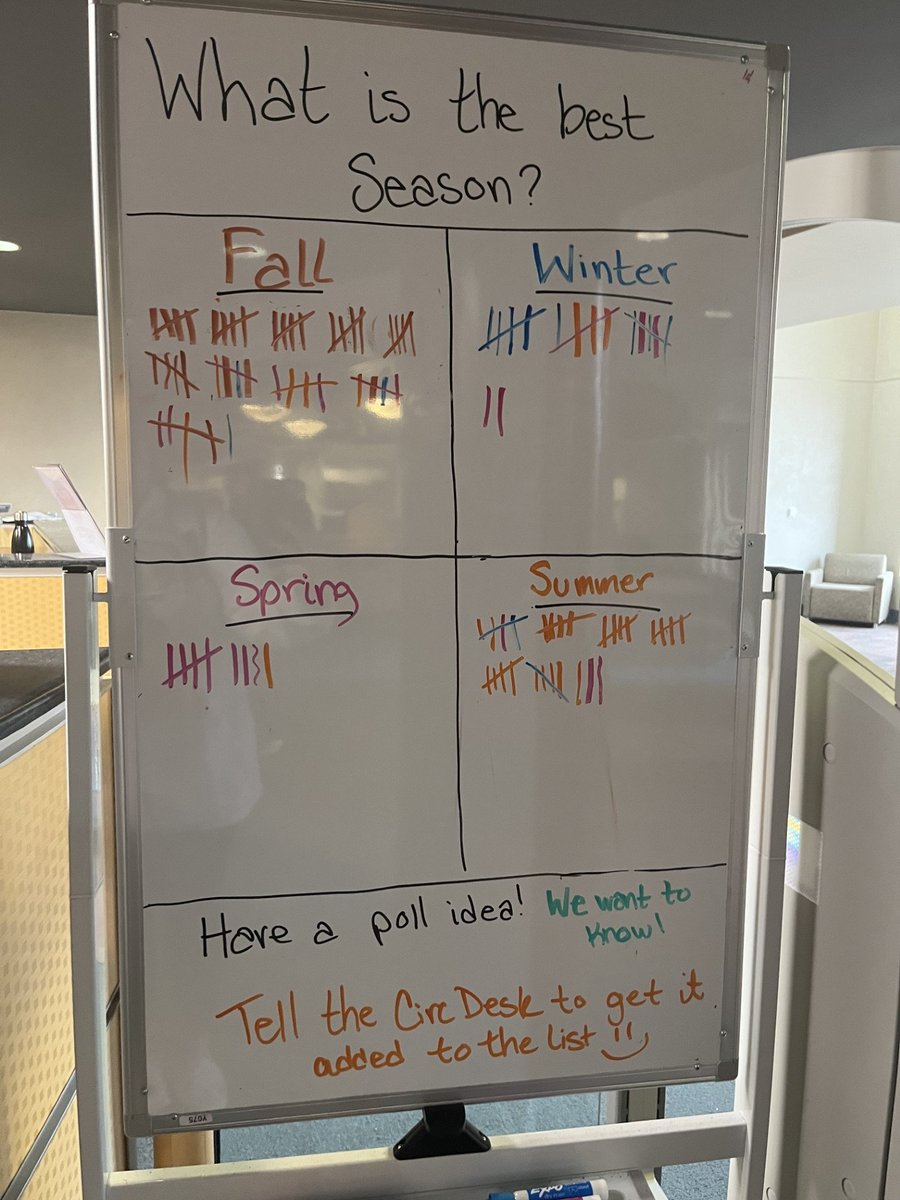 What is the best
Season?
Fall
Winter
Spring
Summer
Have a poll idea!
We want to
know!
Tell the Circ Desk to get it
added to the list
EXPO